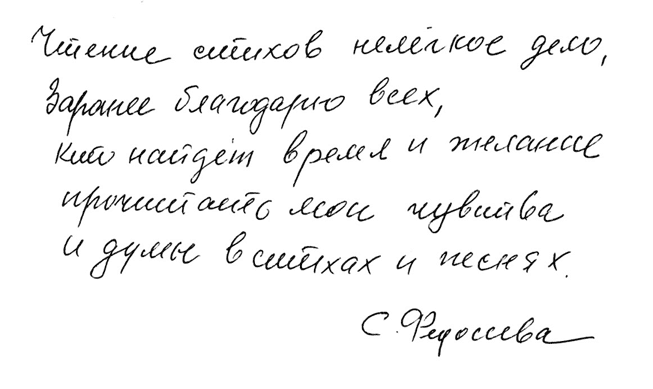 Чтение стихов нелёгкое дело,
Заранее благодарю всех,
кто найдёт время и желание
прочитать мои чувства
и думы в стихах и песнях.
С. Федосеева